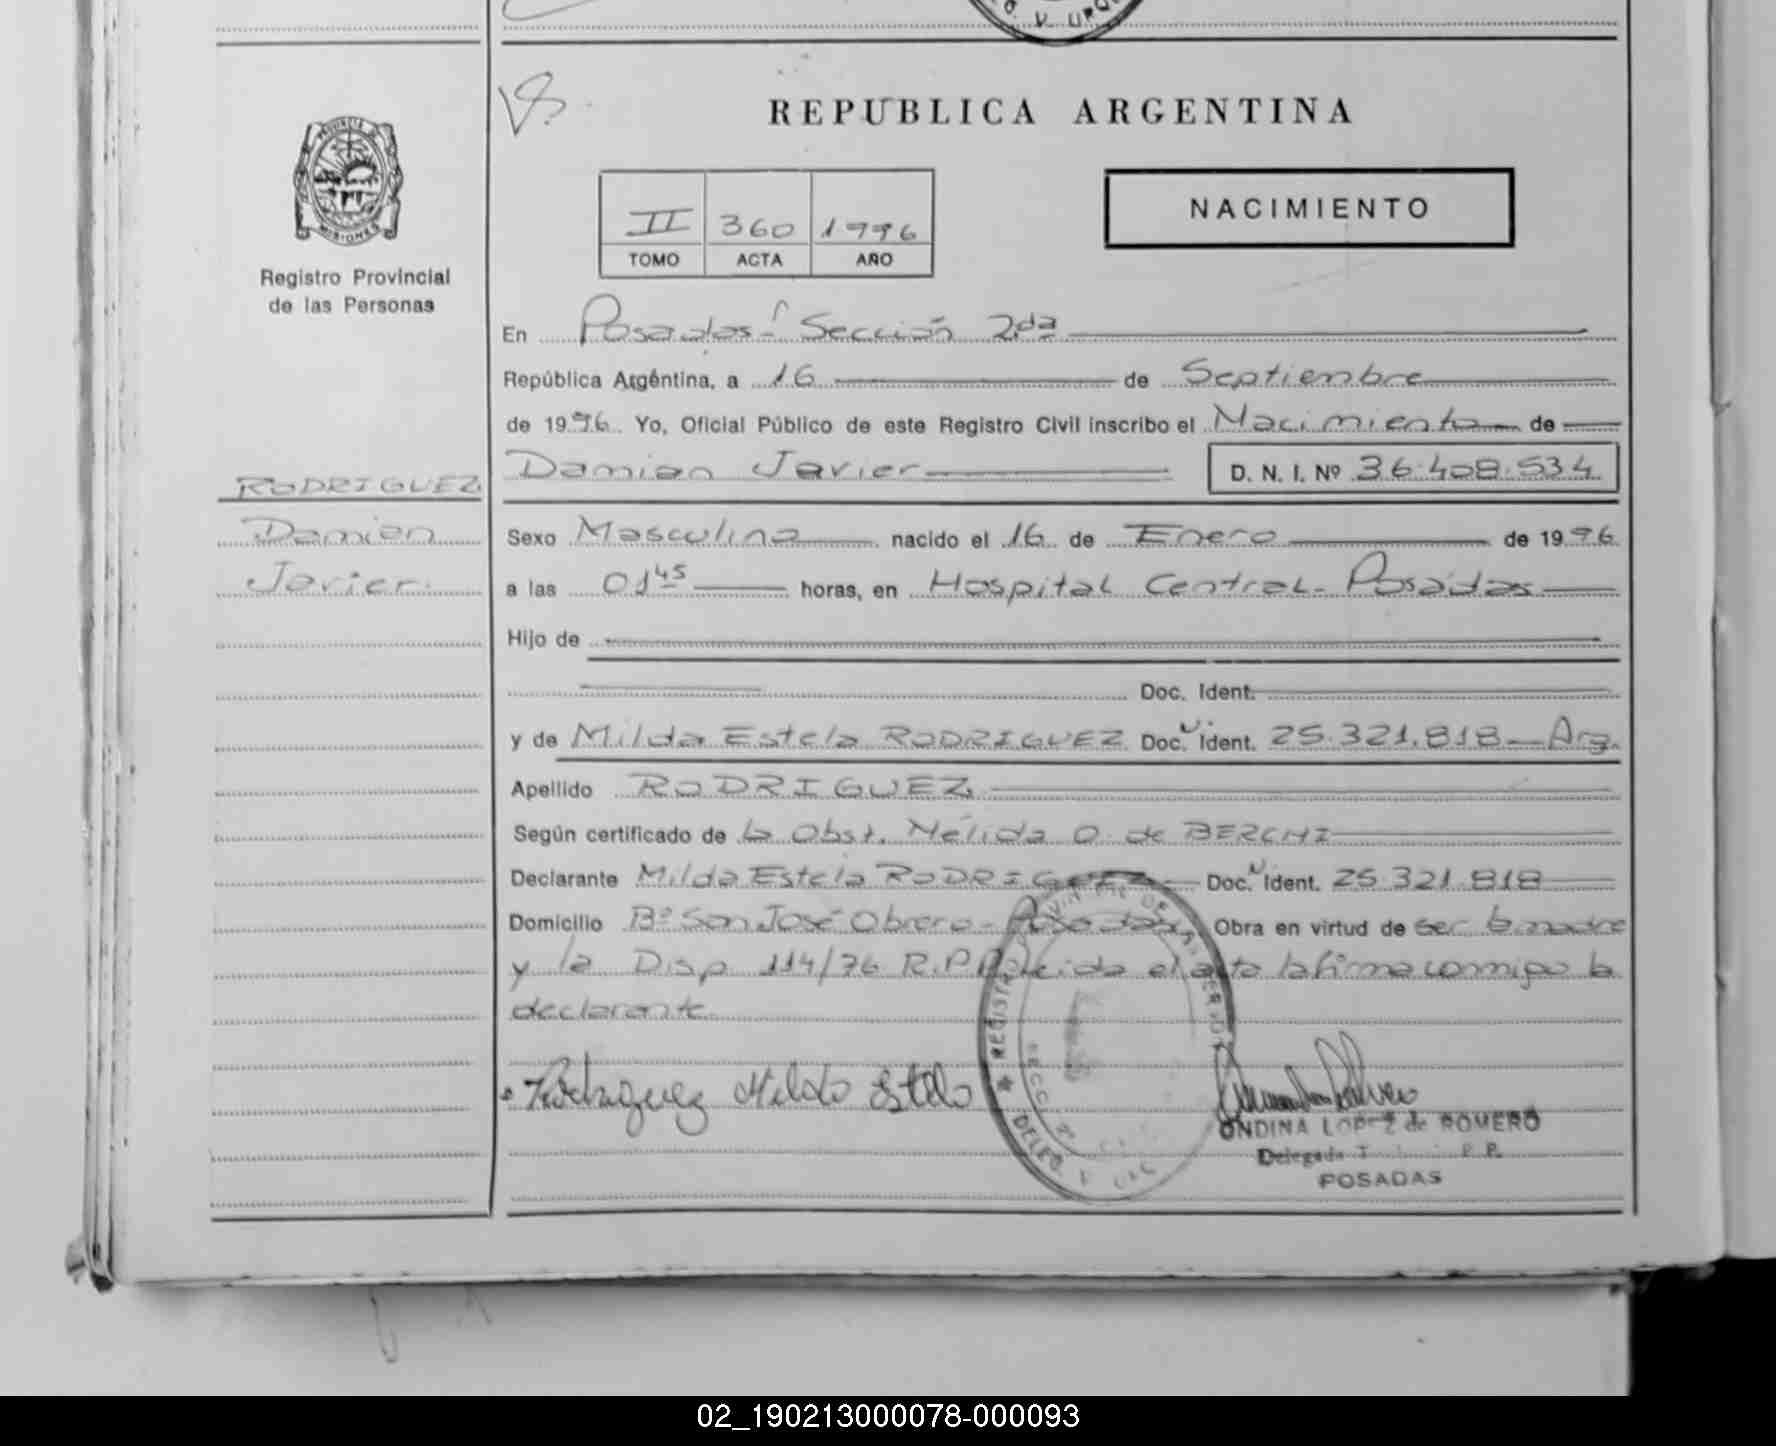 REPUBLICA ARGENTINA
PROVINCIA DE
MISIONES
Registro Provincial
de las Personas
NACIMIENTO
II 360 1996
TOMO ACTA AÑO
En Posadas - Sección 2da
República Argentina, a 16 de Septiembre
de 1996. Yo, Oficial Público de este Registro Civil inscribo el Nacimiento de
Damian Javier D. N. I. Nº 36.408.534
RODRIGUEZ
Damian
Javier.
Sexo Masculino nacido el 16 de Enero de 1996
a las 01 45 horas, en Hospital Central - Posadas
Hijo de
Doc. Ident.
y de Milda Estela RODRIGUEZ Doc. Ident. 25.321.818 - Arg.
Apellido RODRIGUEZ
Según certificado de la Obst. Nélida O. de
Declarante Milda Estela RODRIGUEZ Doc. Ident. 25.321.818
Domicilio Bº San José Obrero - Posadas Obra en virtud de ser la madre
y la Disp. 114/76 R.P.P. Leida el acta la firma conmigo la
declarante.
Rodriguez Milda Estela
ONDINA LOPEZ de ROMERO
Delegada
POSADAS
02_190213000078-000093